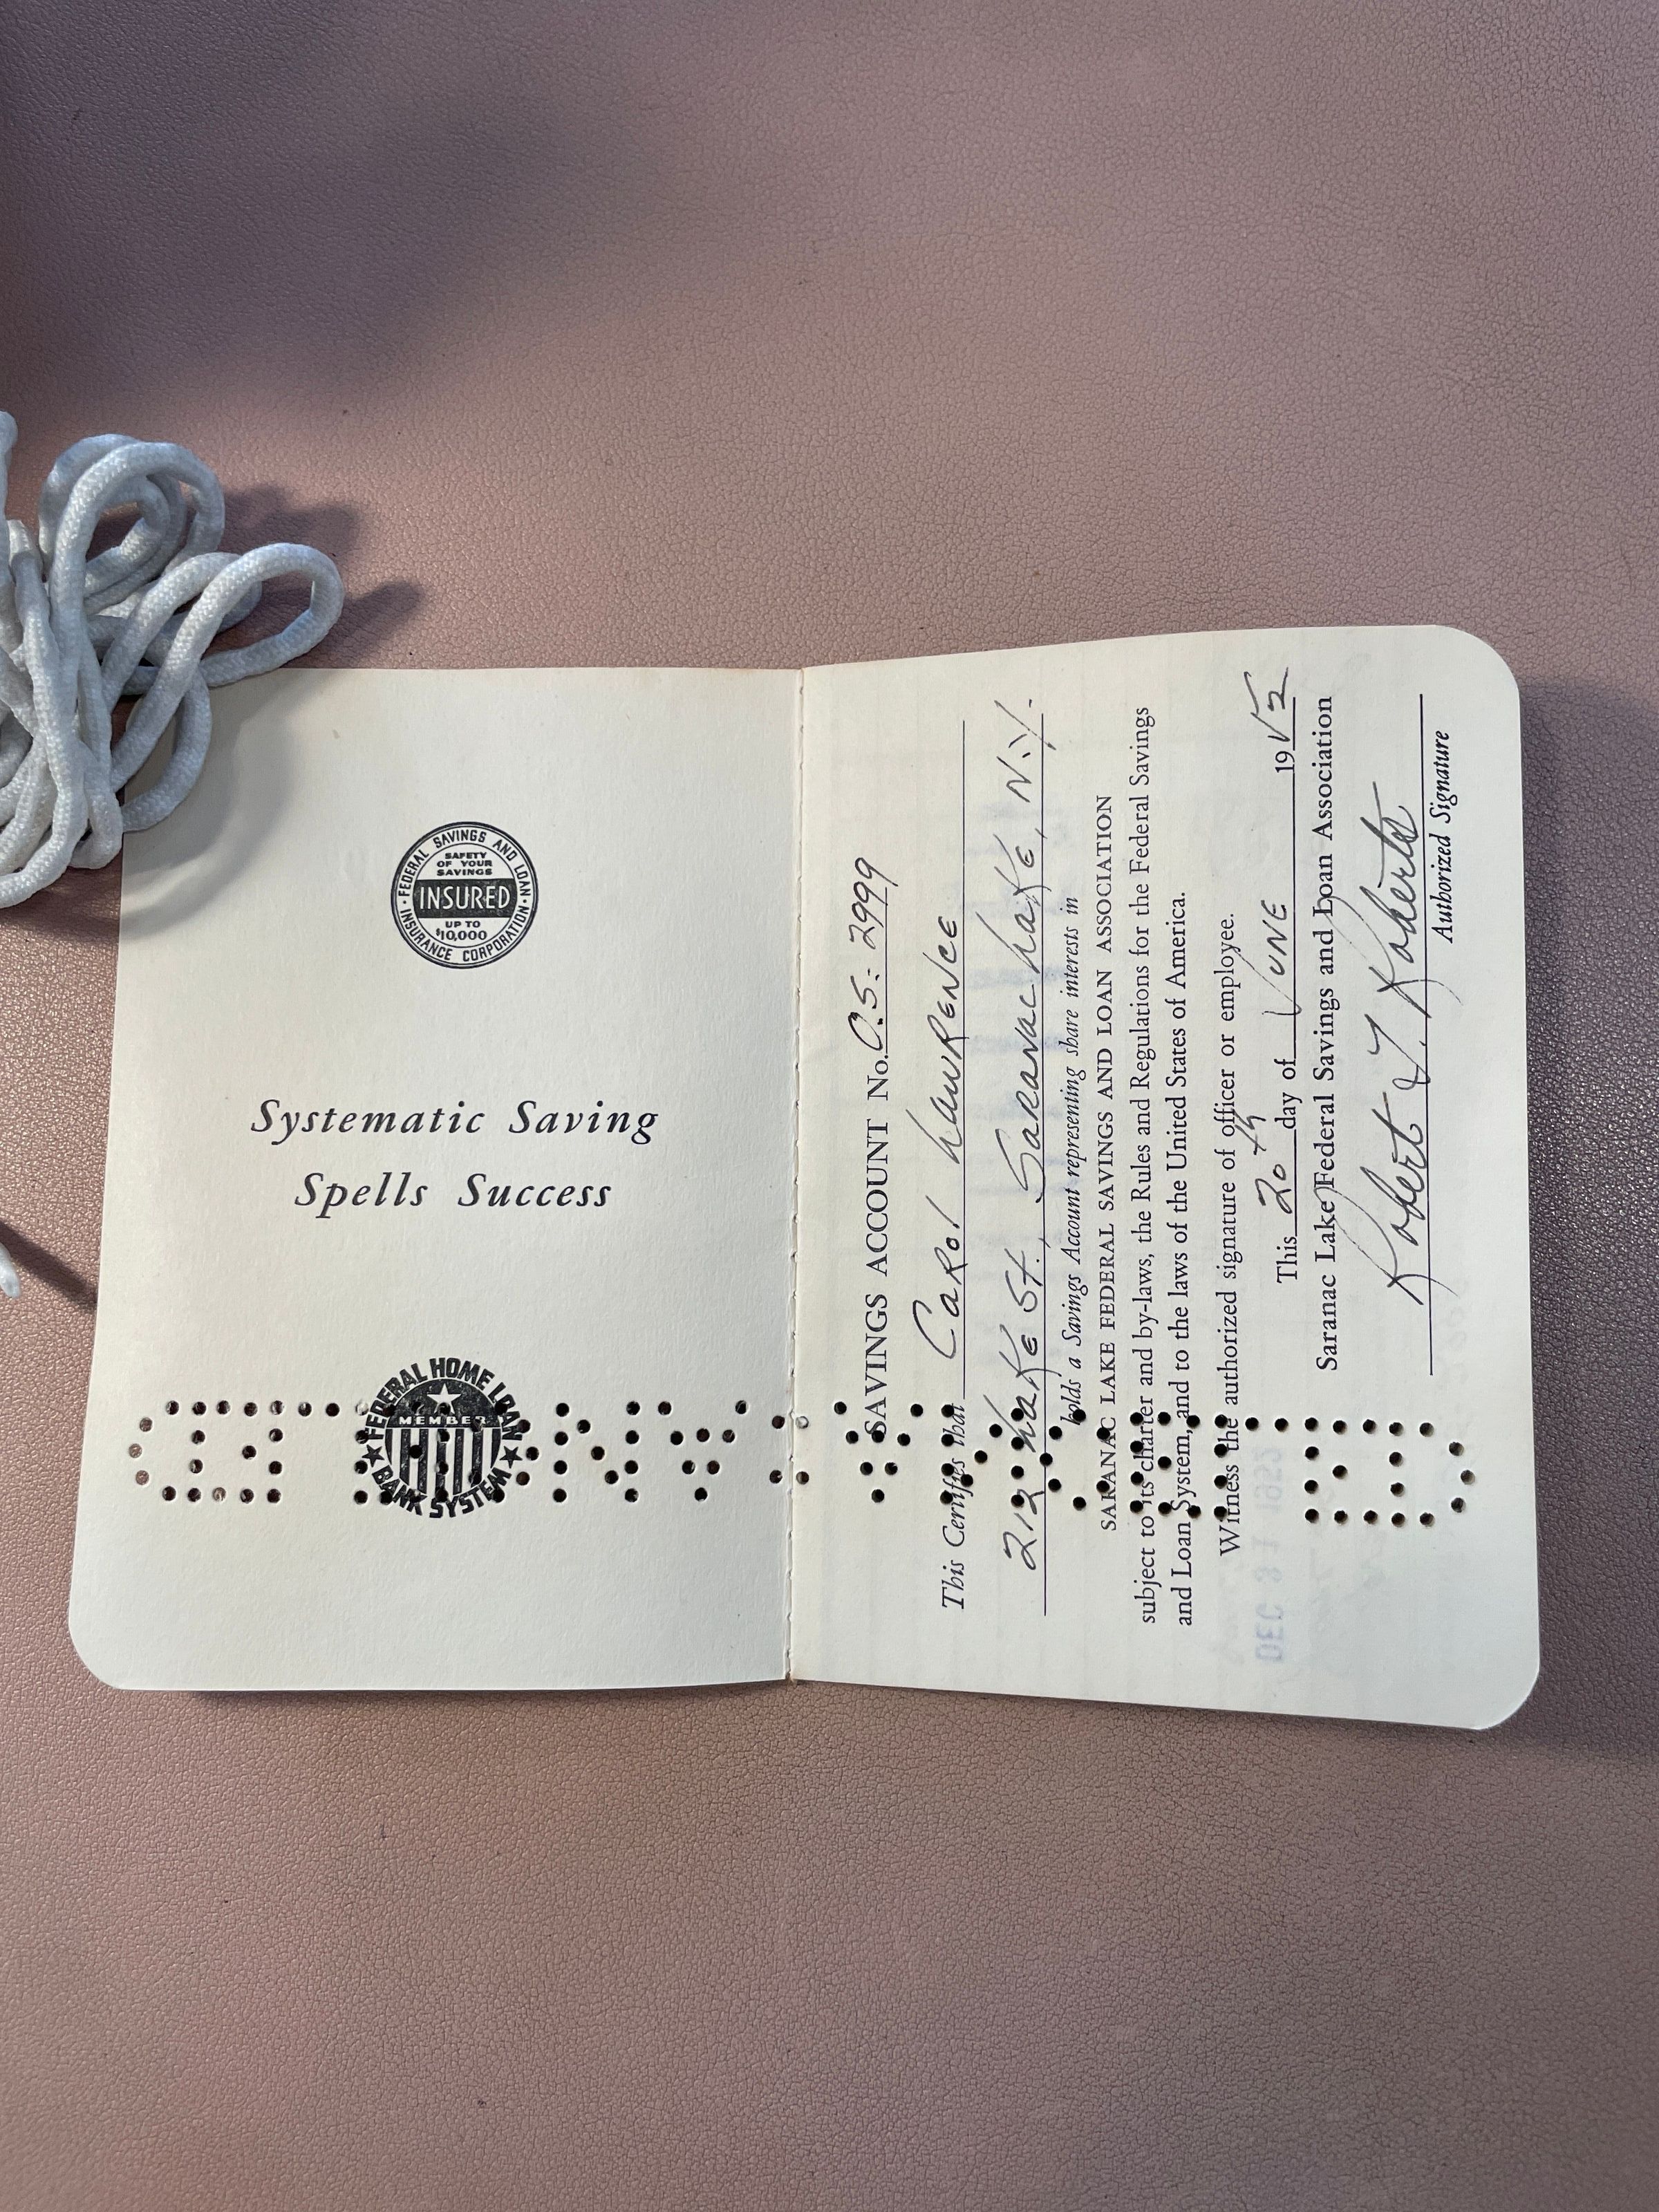 FEDERAL SAVINGS AND LOAN INSURANCE CORPORATION
SAFETY
OF YOUR
SAVINGS
INSURED
UP TO
$10,000
Systematic Saving
Spells Success
FEDERAL HOME LOAN BANK SYSTEM
MEMBER
SAVINGS ACCOUNT No. C.S. 2999
This Certifies that Carol Lawrence
Lake St., Saranac Lake, N.Y.
holds a Savings Account representing share interests in
SARANAC LAKE FEDERAL SAVINGS AND LOAN ASSOCIATION
subject to its charter and by-laws, the Rules and Regulations for the Federal Savings
and Loan System, and to the laws of the United States of America.
Witness the authorized signature of officer or employee.
This 20th day of June 1952
Saranac Lake Federal Savings and Loan Association
Robert J. Roberts
Authorized Signature
DEC 31 1952